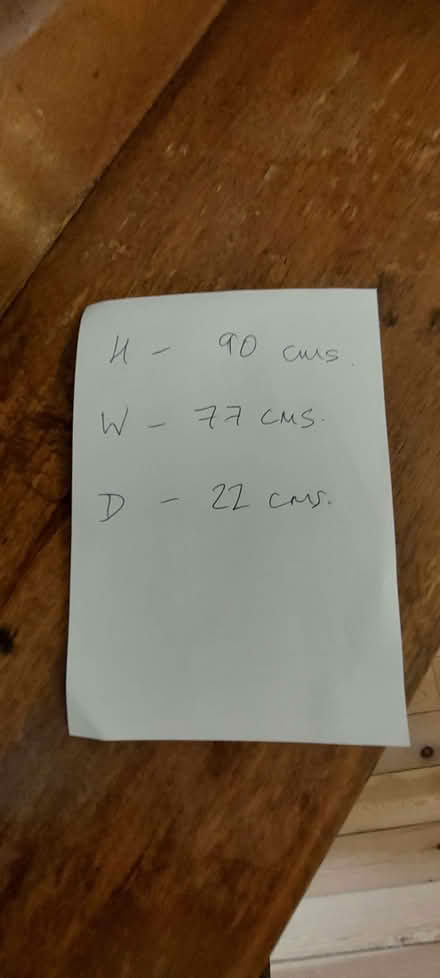 H - 90 cms.
W - 77 cms.
D - 22 cms.